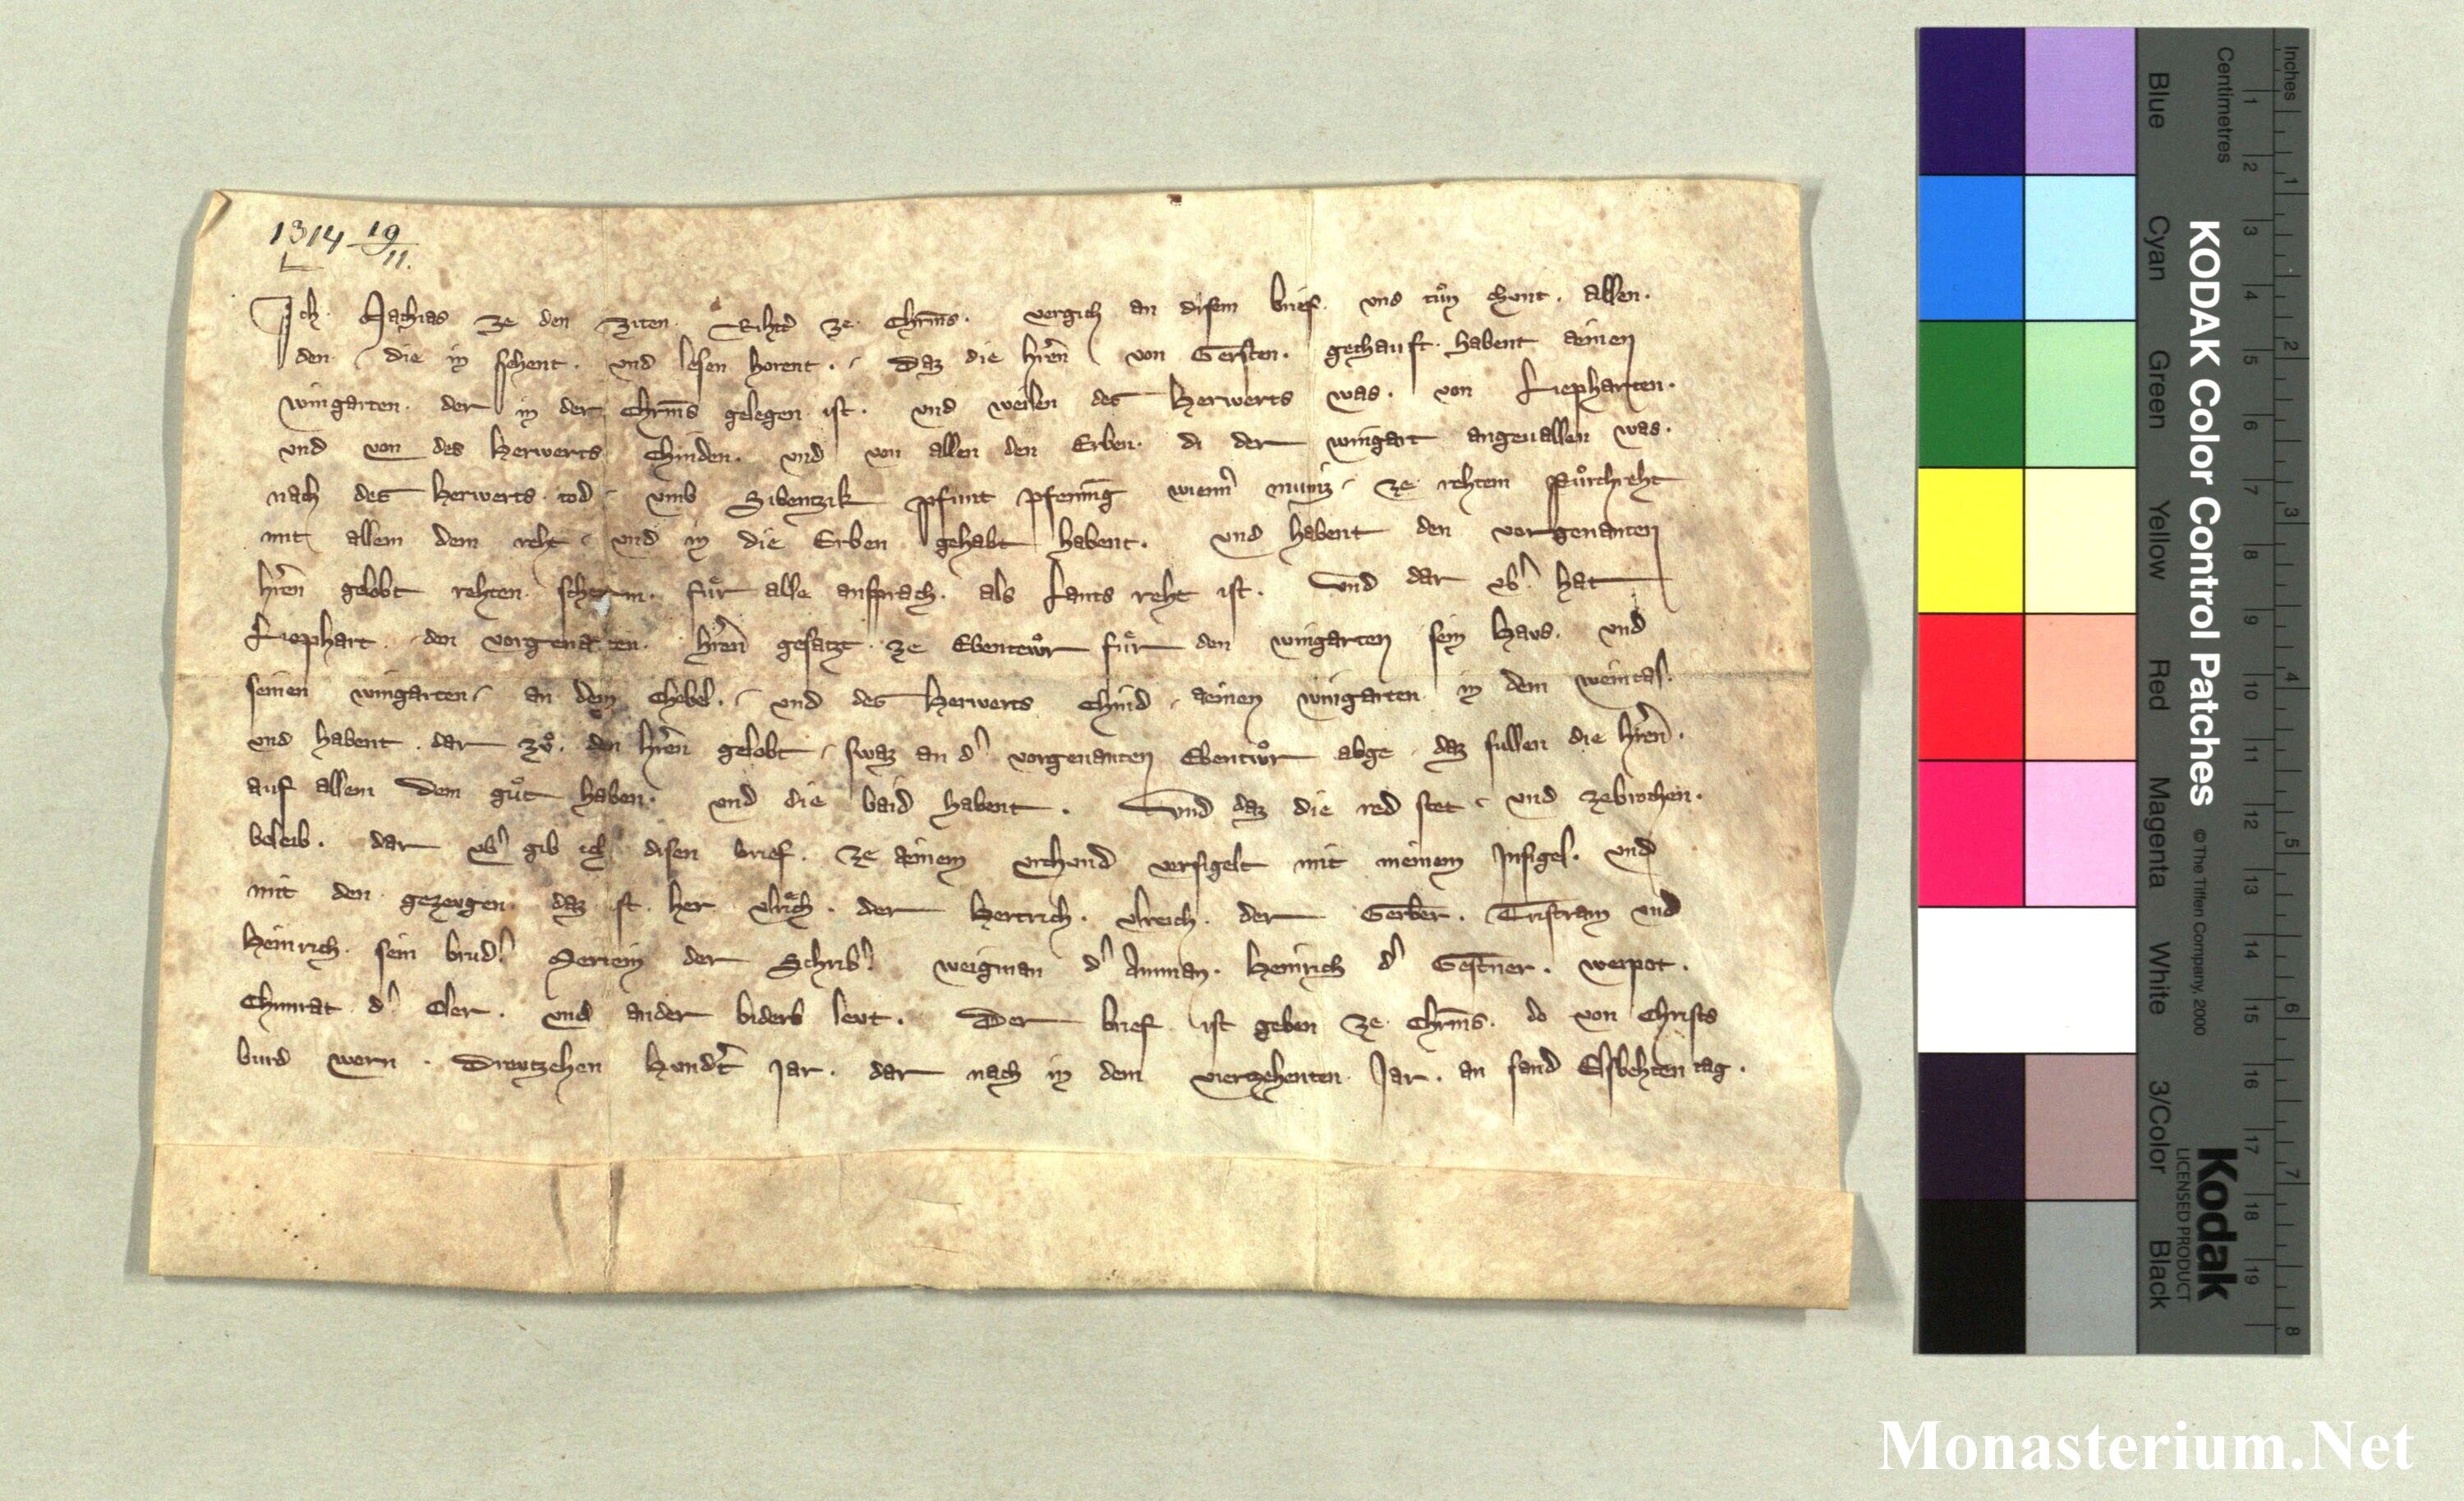 1314 19/11.
Ich. Mathias ze den ziten. Rihter ze. Chrems. vergich an disem brief. vnd tuͦn chunt. allen.
den. die in sehent. vnd lesen horent. Daz die hˀren von Gersten. gechauft. habent aeinen
wingarten. der in der Chrem̄s gelegen ist. vnd weilen des Herwerts was. von Liepharten.
vnd von des Herwerts Chinden. vnd von allen den Erben. di der wingart angeuallen was.
nach des herwerts. tod. vmb Sibentzik pfunt pfening wiennˀ muniz. ze rehtem Puͦrchreht
mit allem dem reht. vnd in die Erben gehabt habent. vnd habent den vorgenanten
hˀren gelobt rehten. scherm. fuͤr alle ansprach. als Lants reht ist. Vnd dar vbˀ hat
Liephart. den vorgenanten. hˀren gesatzt. ze Ebentewͦr fuͤr den wingarten sein Haus. vnd
seinen wingarten. an dem Chobel. vnd des Herwerts Chind. aeinen wingarten. in dem weintal.
vnd habent. dar zvͦ. den hˀren gelobt. swaz an dˀ vorgenanten Ebentwͦr abge. daz sullen die hˀren.
auf allem dem guͦt haben. vnd die baid habent. Vnd daz die red stet. vnd zebrochen.
beleib. dar vbˀ gib ich disen brief. ze aeinem vrchund versigelt mit meinem Insigel. vnd
mit den gezeugen. daz ist. her vlrich. der Hertrich. vlreich. der Gerber. Tristram vnd
Heinrich. sein brudˀ. der Schribˀ. weigman dˀ Amman. Heinrich dˀ Gestner. werpot.
Chunrat dˀ Oler. vnd ander biderb leut. Der brief ist geben ze Chrem̄s. do von Christs
burd wern. Dreutzehen Hundˀt Jar. dar nach in dem vierzehenten. Jar. an sand Elsbehten tag.
Inches
Centimetres
1 2 3 4 5 6 7 8
1 2 3 4 5 6 7 8 9 10 11 12 13 14 15 16 17 18 19
KODAK Color Control Patches
©The Tiffen Company, 2000
Kodak
LICENSED PRODUCT
Blue
Cyan
Green
Yellow
Red
Magenta
White
3/Color
Black
Monasterium.Net